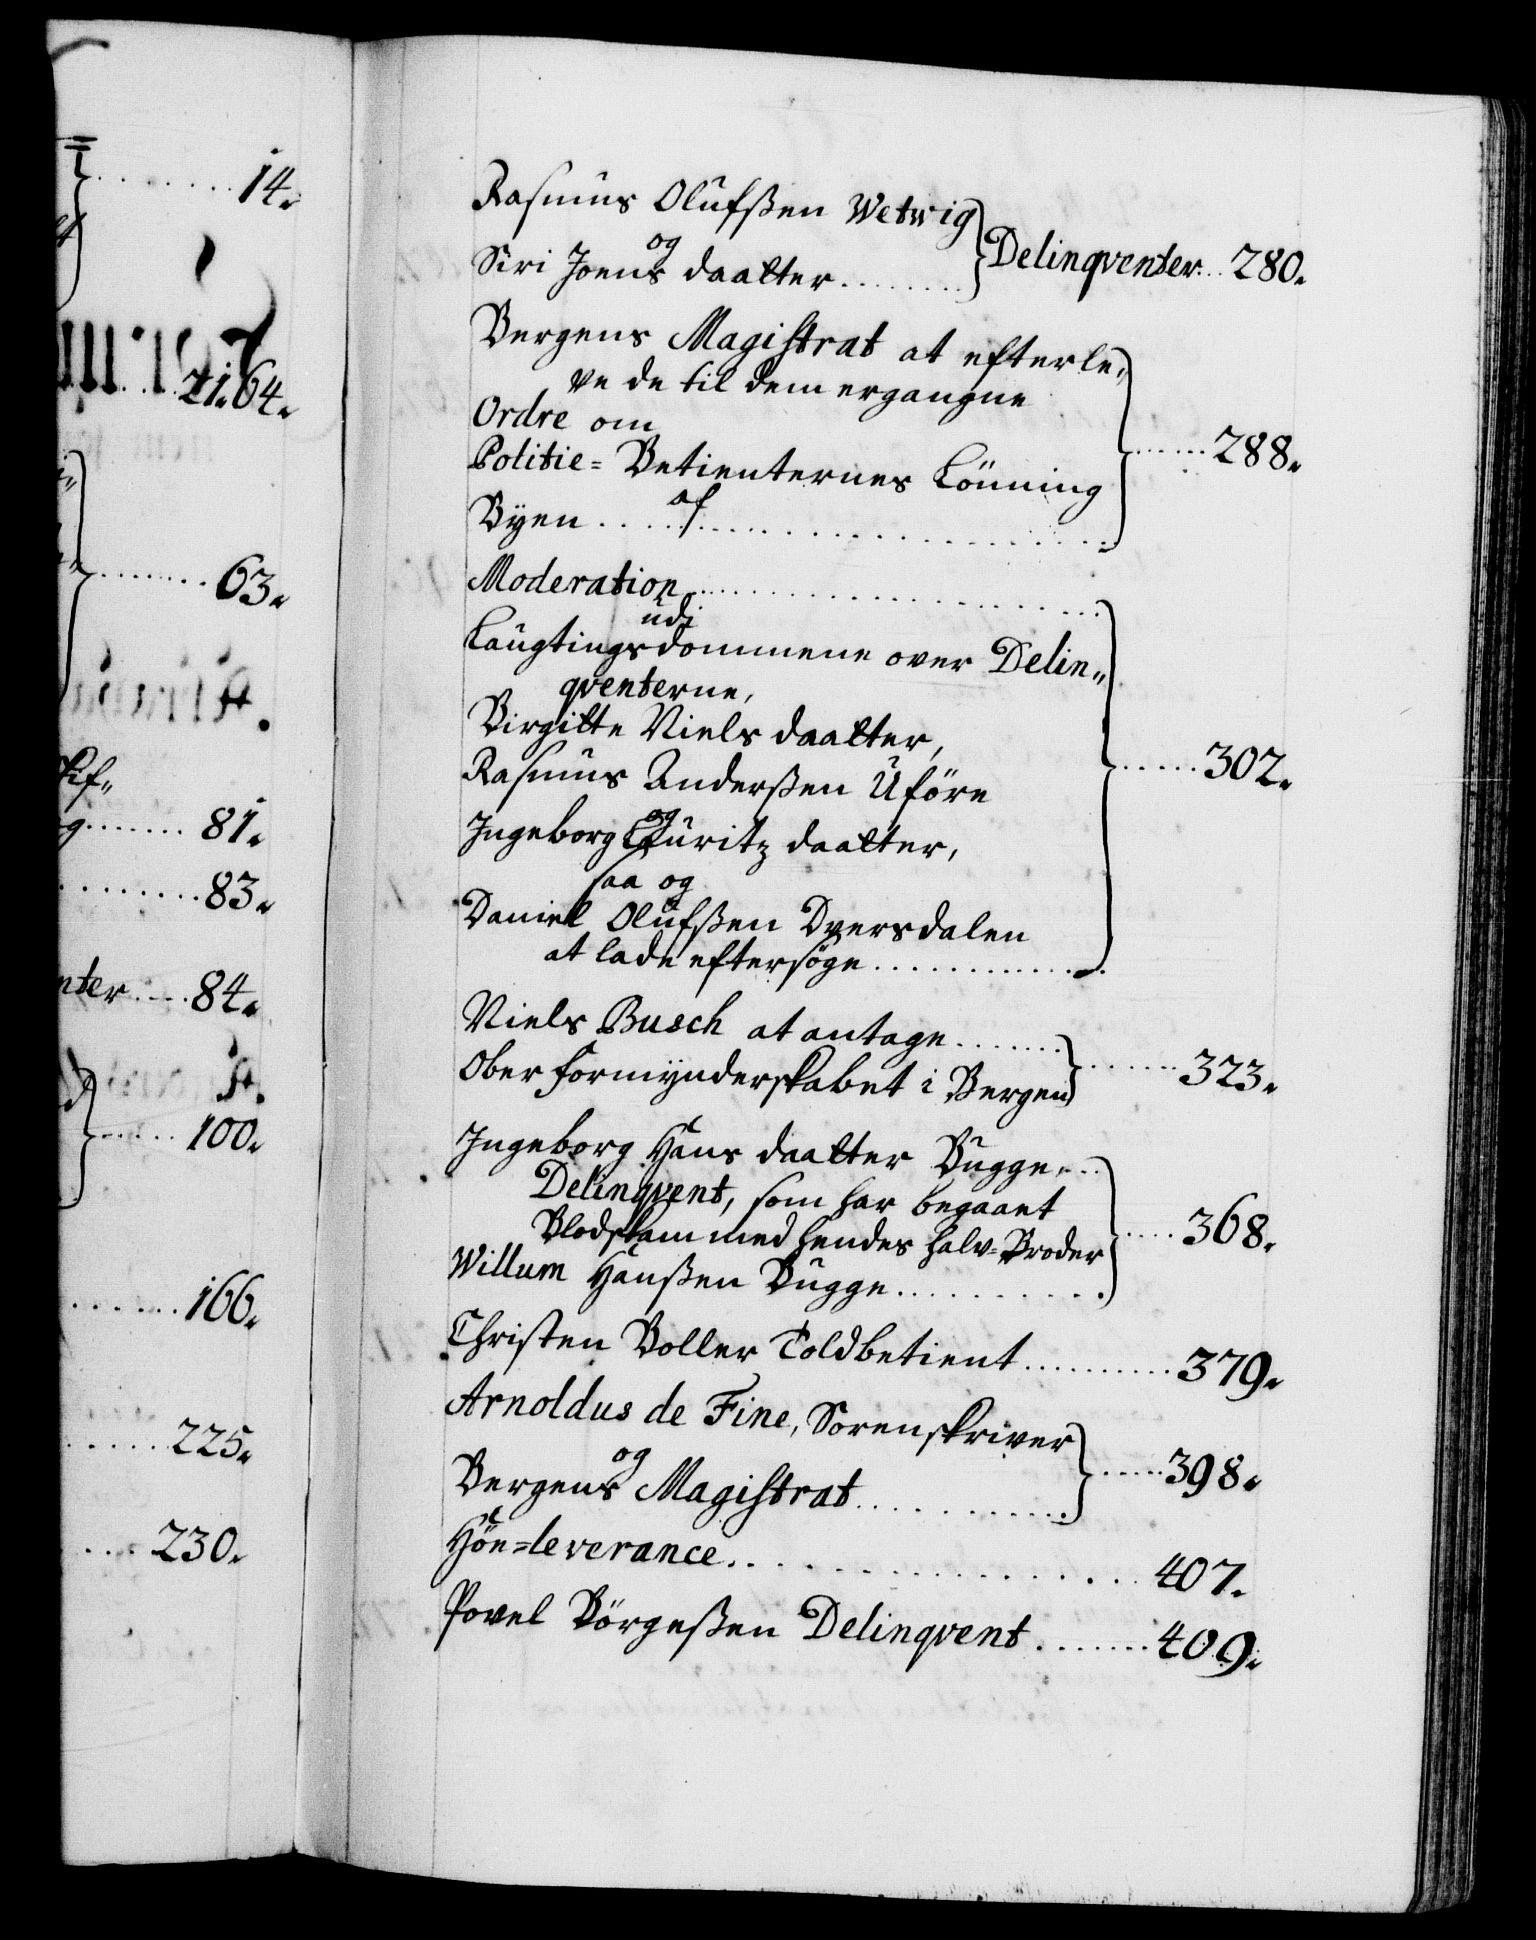 14.
21.64.
63.
81.
83.
nter .... 84.
100.
166.
225.
230.
Rasmus Olufsßen Wetwig
og
Siri Joens daatter ........ Delinqventer .. 280.
Bergens Magistrat at efterle„
ve de til dem ergangne
Ordre om
Politie= Betienternes Lönning
af
Byen ........ 288.
Moderation ........
udi
Laugtingsdommene over Delin„
qventerne,
Birgitte Niels daatter,
Rasmus Anderßen Uföre
og
Ingeborg Lauritz daatter, ..... 302.
saa og
Daniel Olufßen Dversdalen
at lade eftersöge ............
Niels Busch at antage .......
Ober formynderskabet i Bergen ....... 323.
Ingeborg Hans daatter Bugge, ..
Delinqvent, som har begaaet
Blodskam med hendes halv=Broder .... 368.
Willum Hanßen Bugge ..........
Christen Boller Toldbetient .......... 379.
Arnoldus de Fine, Sorenskriver
og
Bergens Magistrat ........ 398.
Höe=leverance ........ 407.
Povel Börgeßen Delinqvent ....... 409.